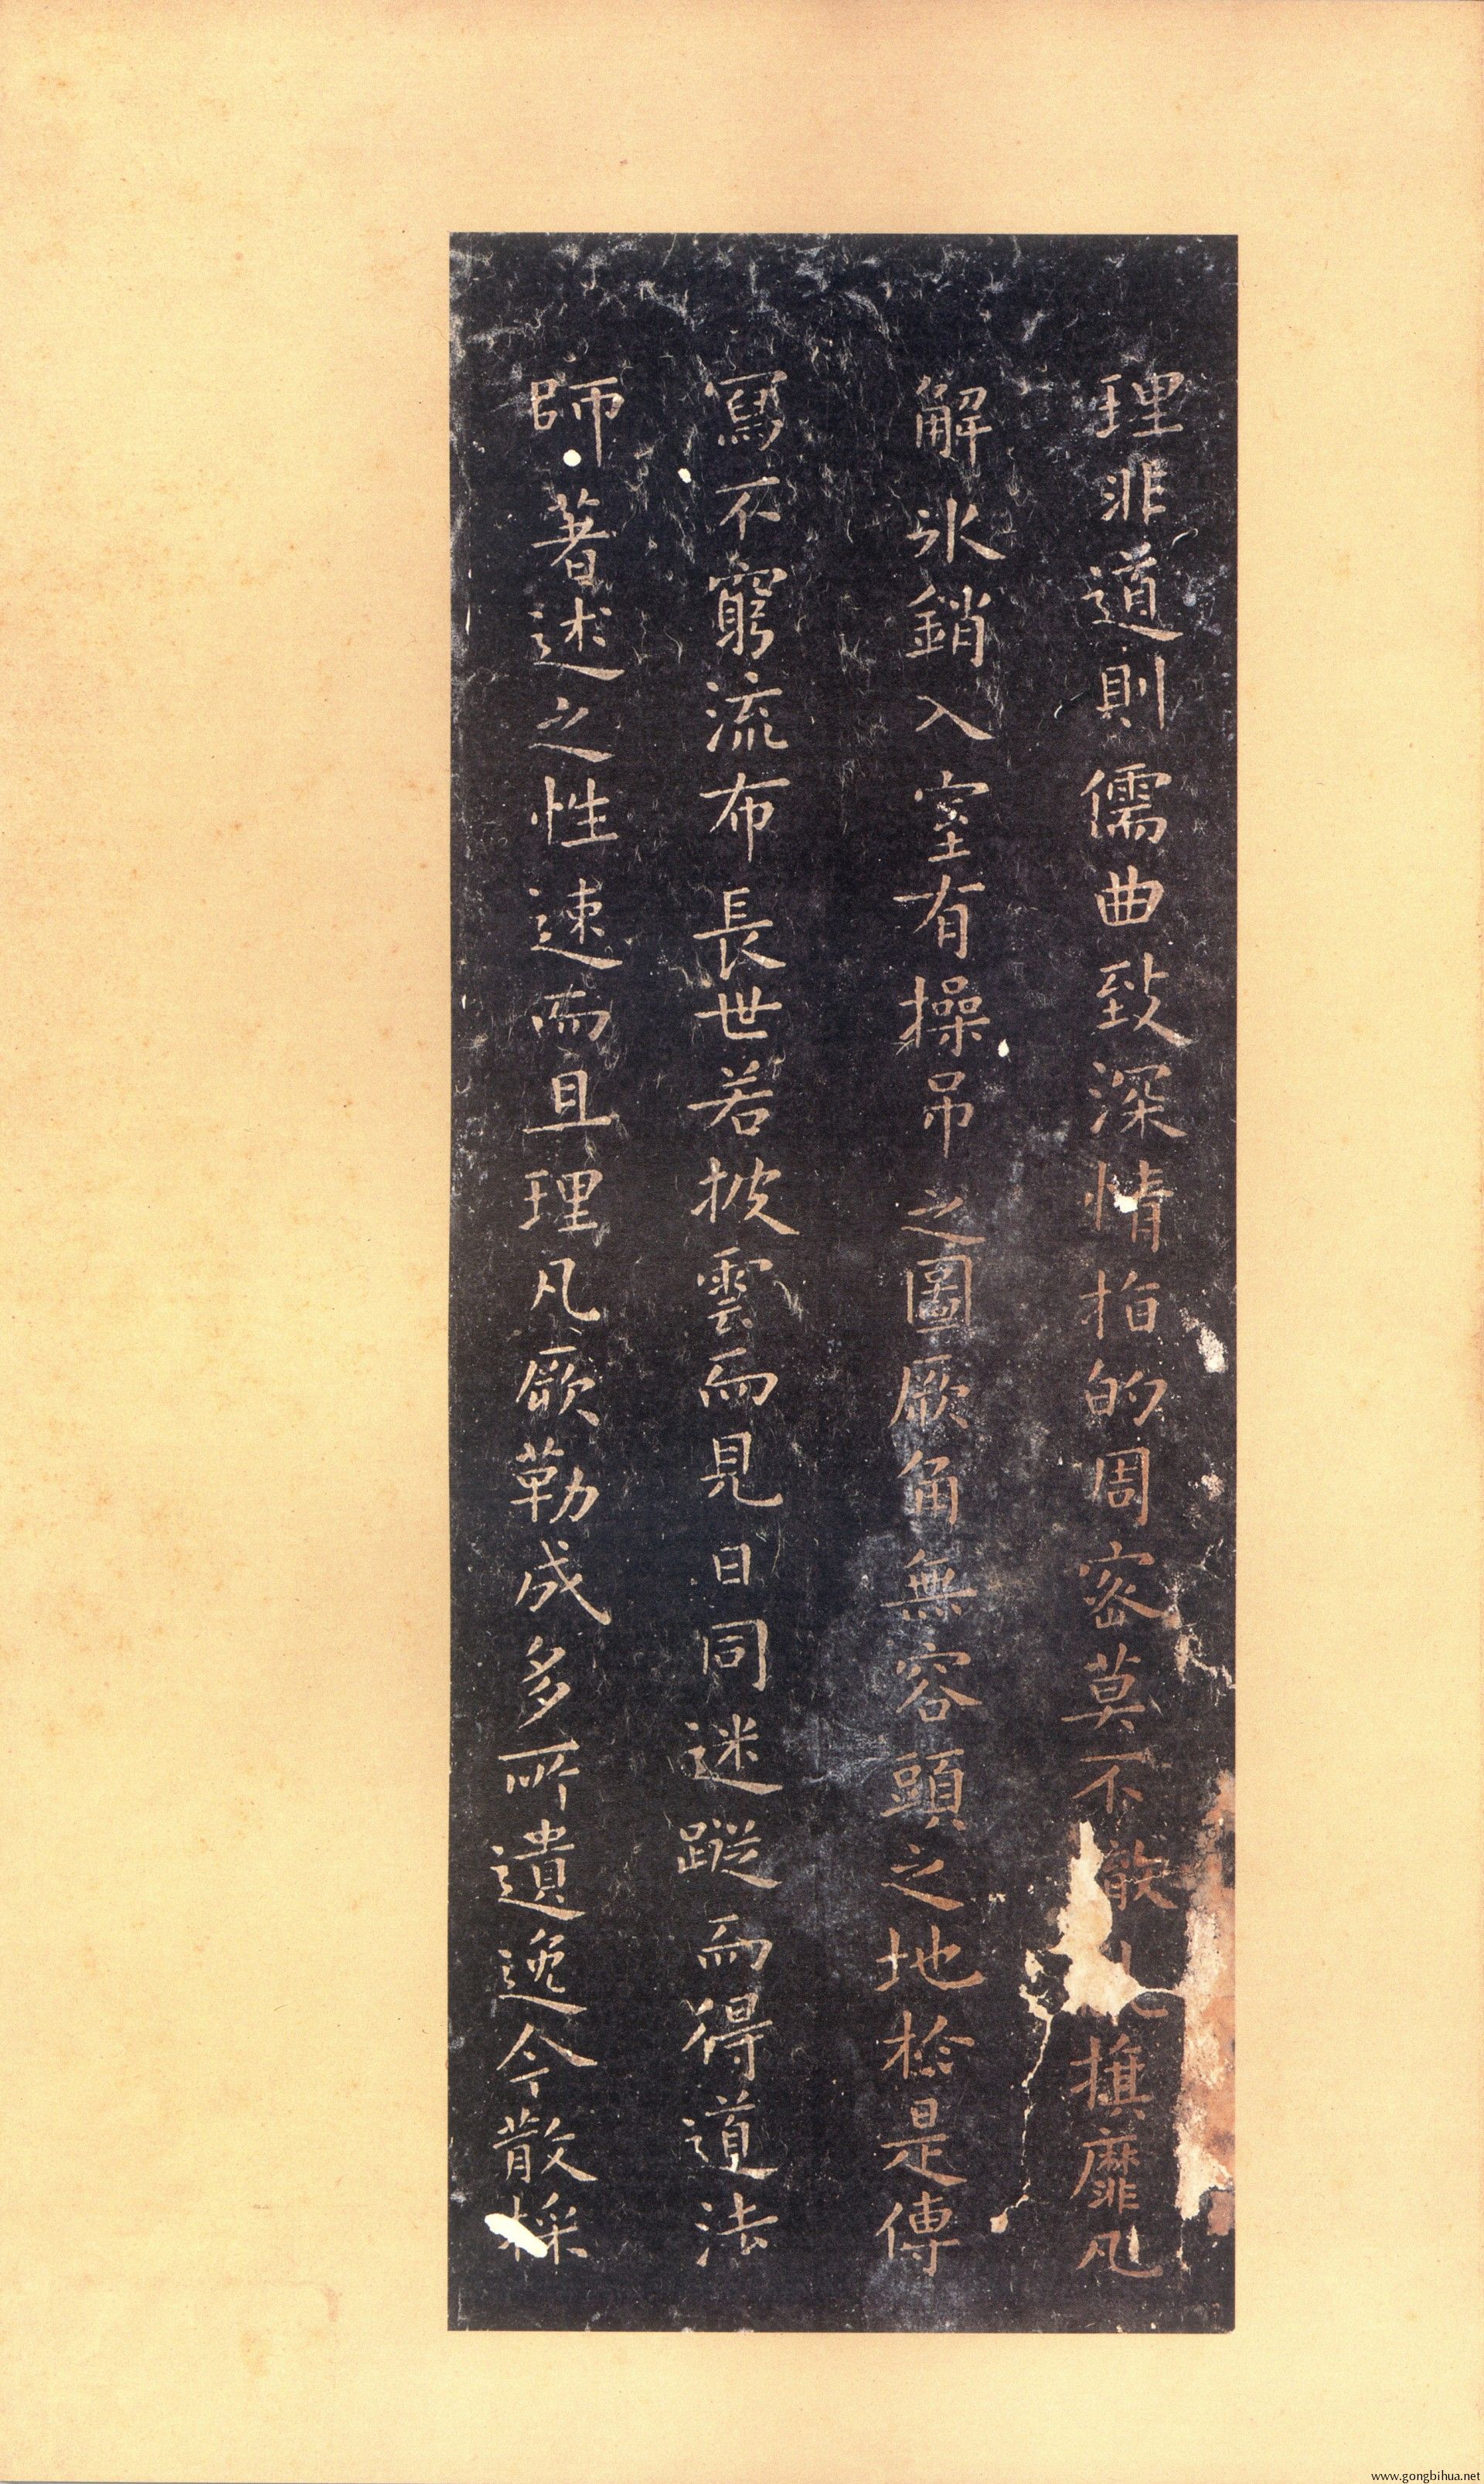 理非道則儒曲致深情指的周密莫不散乩旗靡凡
解氷銷入室有操吊之圖厥角無容頭之地檢是傳
寫不窮流布長世若披雲而見日同迷蹤而得道法
師著述之性速而且理凡厥勒成多所遺逸今散採
www.gongbihua.net